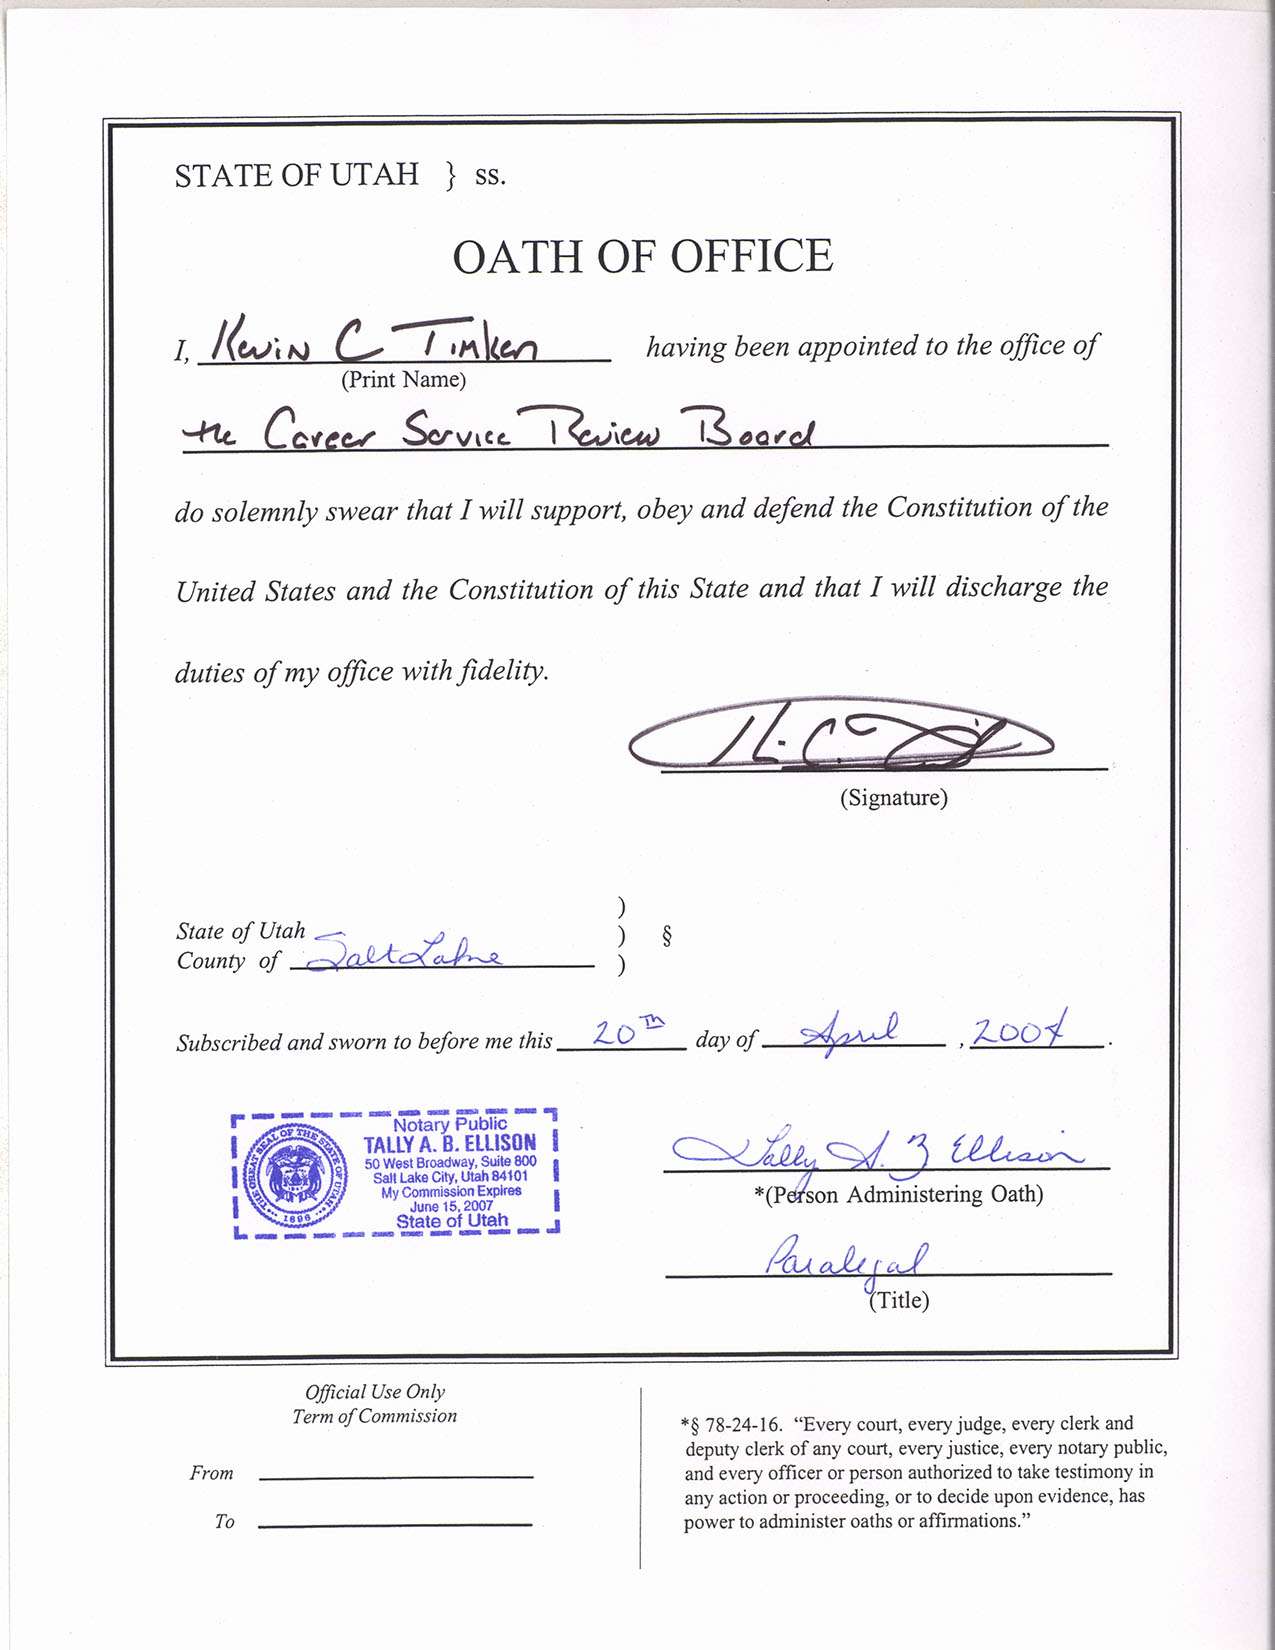 STATE OF UTAH } ss.
OATH OF OFFICE
I, Kevin C Timken having been appointed to the office of
(Print Name)
the Career Service Review Board
do solemnly swear that I will support, obey and defend the Constitution of the
United States and the Constitution of this State and that I will discharge the
duties of my office with fidelity.
(Signature)
)
State of Utah ) §
County of Salt Lake )
Subscribed and sworn to before me this 20th day of April, 2004.
Notary Public
TALLY A. B. ELLISON
50 West Broadway, Suite 800
Salt Lake City, Utah 84101
My Commission Expires
June 15, 2007
State of Utah
THE GREAT SEAL OF THE STATE OF UTAH
1896
Tally A. B Ellison
*(Person Administering Oath)
Paralegal
(Title)
Official Use Only
Term of Commission
From
To
*§ 78-24-16. “Every court, every judge, every clerk and
deputy clerk of any court, every justice, every notary public,
and every officer or person authorized to take testimony in
any action or proceeding, or to decide upon evidence, has
power to administer oaths or affirmations.”